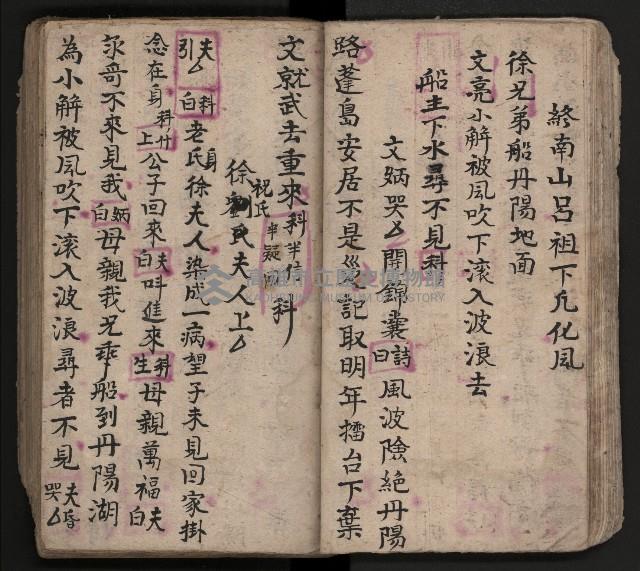 終南山呂祖下凡化風
徐兄弟船丹陽地面
文亮小解被風吹下滾入波浪去
船主下水尋不見科
文炳哭厶開錦囊詩曰風波險絕丹陽
路蓬島安居不是災記取明年擂台下棄
文就武去重來科半信半疑科
徐祝氏夫人上厶
夫引厶科白老身氏徐夫人染成一病望子未見回家掛
念在身科什上公子回來夫白叫進來科生母親萬福夫白
哥不來見我炳白母親我兄乘船到丹陽湖
為小解被風吹下滾入波浪尋者不見夫昏哭厶
高雄市立歷史博物館
KAOHSIUNG MUSEUM OF HISTORY